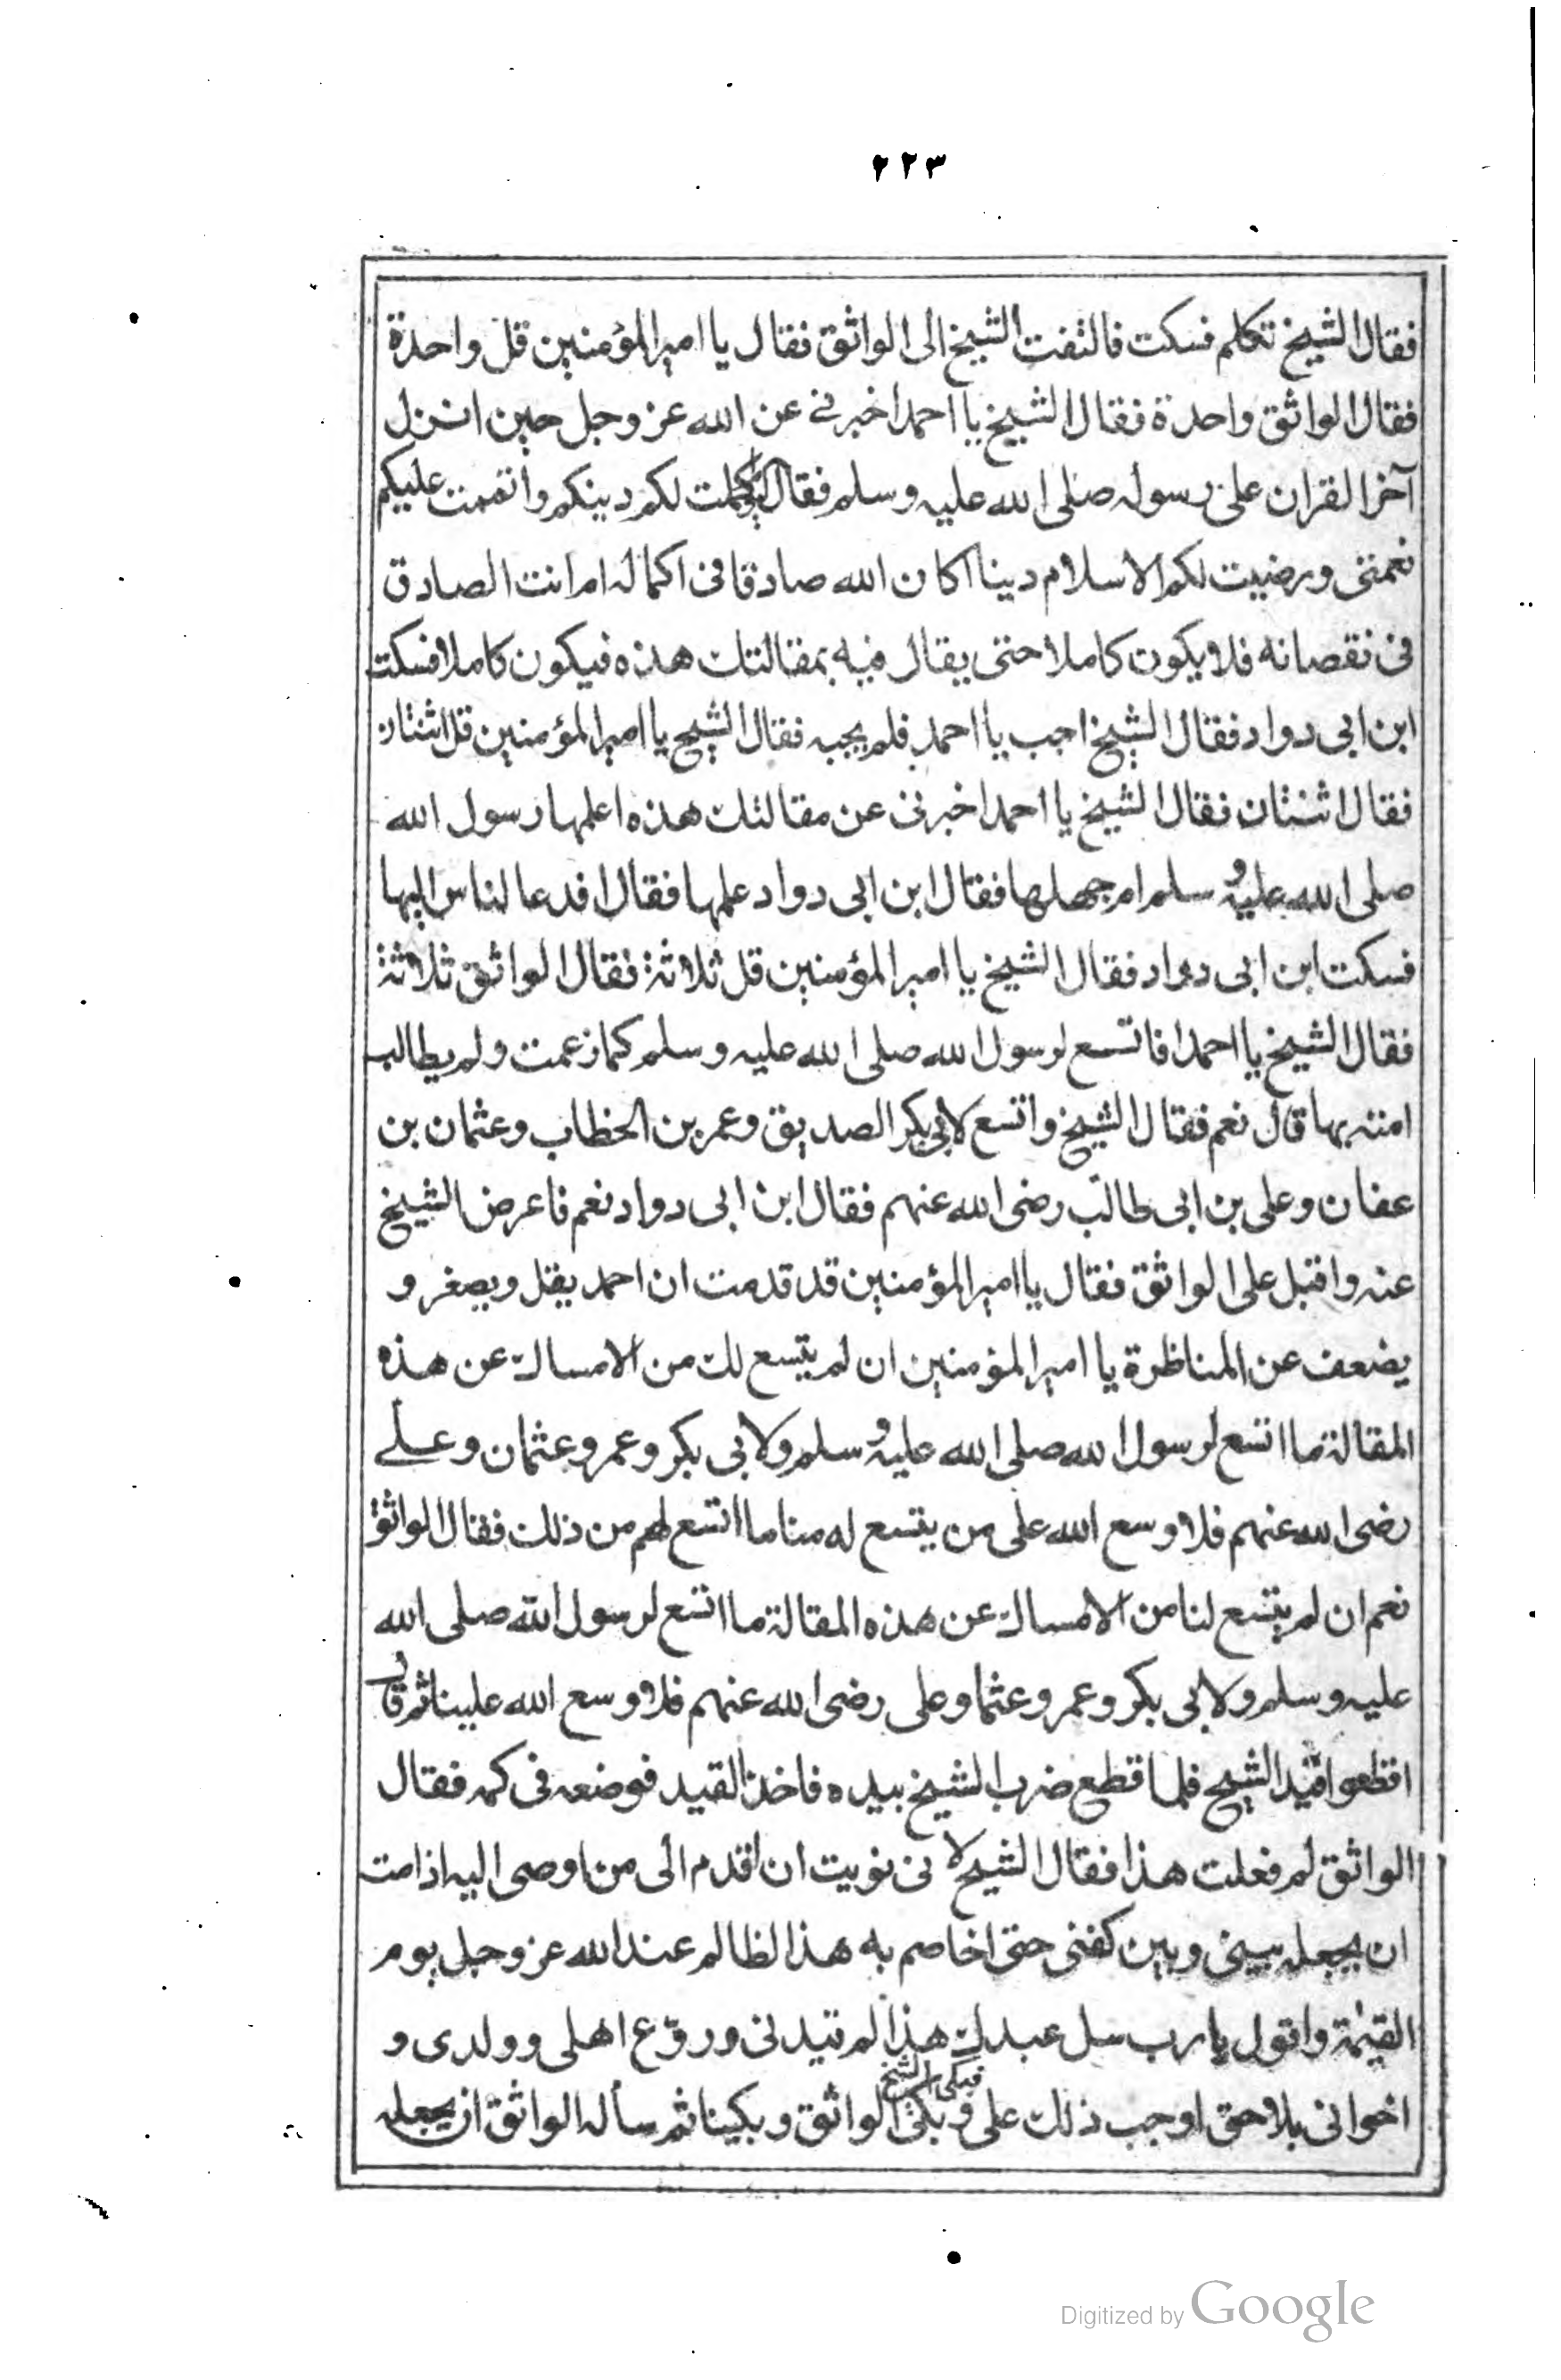 ٢٢٣
فقال الشيخ تكلم فسكت فالتفت الشيخ الى الواثق فقال يا امير المؤمنين قل واحدة
فقال الواثق واحدة فقال الشيخ يا احمد اخبرنى عن الله عز وجل حين انزل
آخر القران على رسوله صلى الله عليه وسلم فقال اليوم اكملت لكم دينكم واتممت عليكم
نعمتى ورضيت لكم الاسلام دينا اكان الله صادقا فى اكماله ام انت الصادق
فى نقصانه فلا يكون كاملا حتى يقال فيه بمقالتك هذه فيكون كاملا فسكت
ابن ابى دواد فقال الشيخ اجب يا احمد فلم يجبه فقال الشيخ يا امير المؤمنين قل اثنتان
فقال اثنتان فقال الشيخ يا احمد اخبرنى عن مقالتك هذه اعلمها رسول الله
صلى الله عليه وسلم ام جهلها فقال ابن ابى دواد علمها فقال افدعا الناس اليها
فسكت ابن ابى دواد فقال الشيخ يا امير المؤمنين قل ثلاثة فقال الواثق ثلاثة
فقال الشيخ يا احمد افاتسع لرسول الله صلى الله عليه وسلم كما زعمت ولم يطالب
امته بها قال نعم فقال الشيخ واتسع لابى بكر الصديق وعمر بن الخطاب وعثمان بن
عفان وعلى بن ابى طالب رضى الله عنهم فقال ابن ابى دواد نعم فاعرض الشيخ
عنه واقبل على الواثق فقال يا امير المؤمنين قد قدمت ان احمد يقل ويصغر و
يضعف عن المناظرة يا امير المؤمنين ان لم يتسع لك من الامساك عن هذه
المقالة ما اتسع لرسول الله صلى الله عليه وسلم ولابى بكر وعمر وعثمان وعلى
رضى الله عنهم فلا وسع الله على من يتسع له منا ما اتسع لهم من ذلك فقال الواثق
نعم ان لم يتسع لنا من الامساك عن هذه المقالة ما اتسع لرسول الله صلى الله
عليه وسلم ولابى بكر وعمر وعثما وعلى رضى الله عنهم فلا وسع الله علينا ثم قال
اقطعوا قيد الشيخ فلما قطع ضرب الشيخ بيده فاخذ القيد فوضعه فى كمه فقال
الواثق لم فعلت هذا فقال الشيخ لانى نويت ان اقدم الى من اوصى اليه اذا مت
ان يجعله بينى وبين كفنى حتى اخاصم به هذا الظالم عند الله عز وجل يوم
القيمة واقول يا رب سل عبدك هذا لم قيدنى وروّع اهلى وولدى و
اخوانى بلا حق اوجب ذلك على فبكى الشيخ وبكى الواثق وبكينا ثم سأله الواثق ان يجعله
Digitized by Google